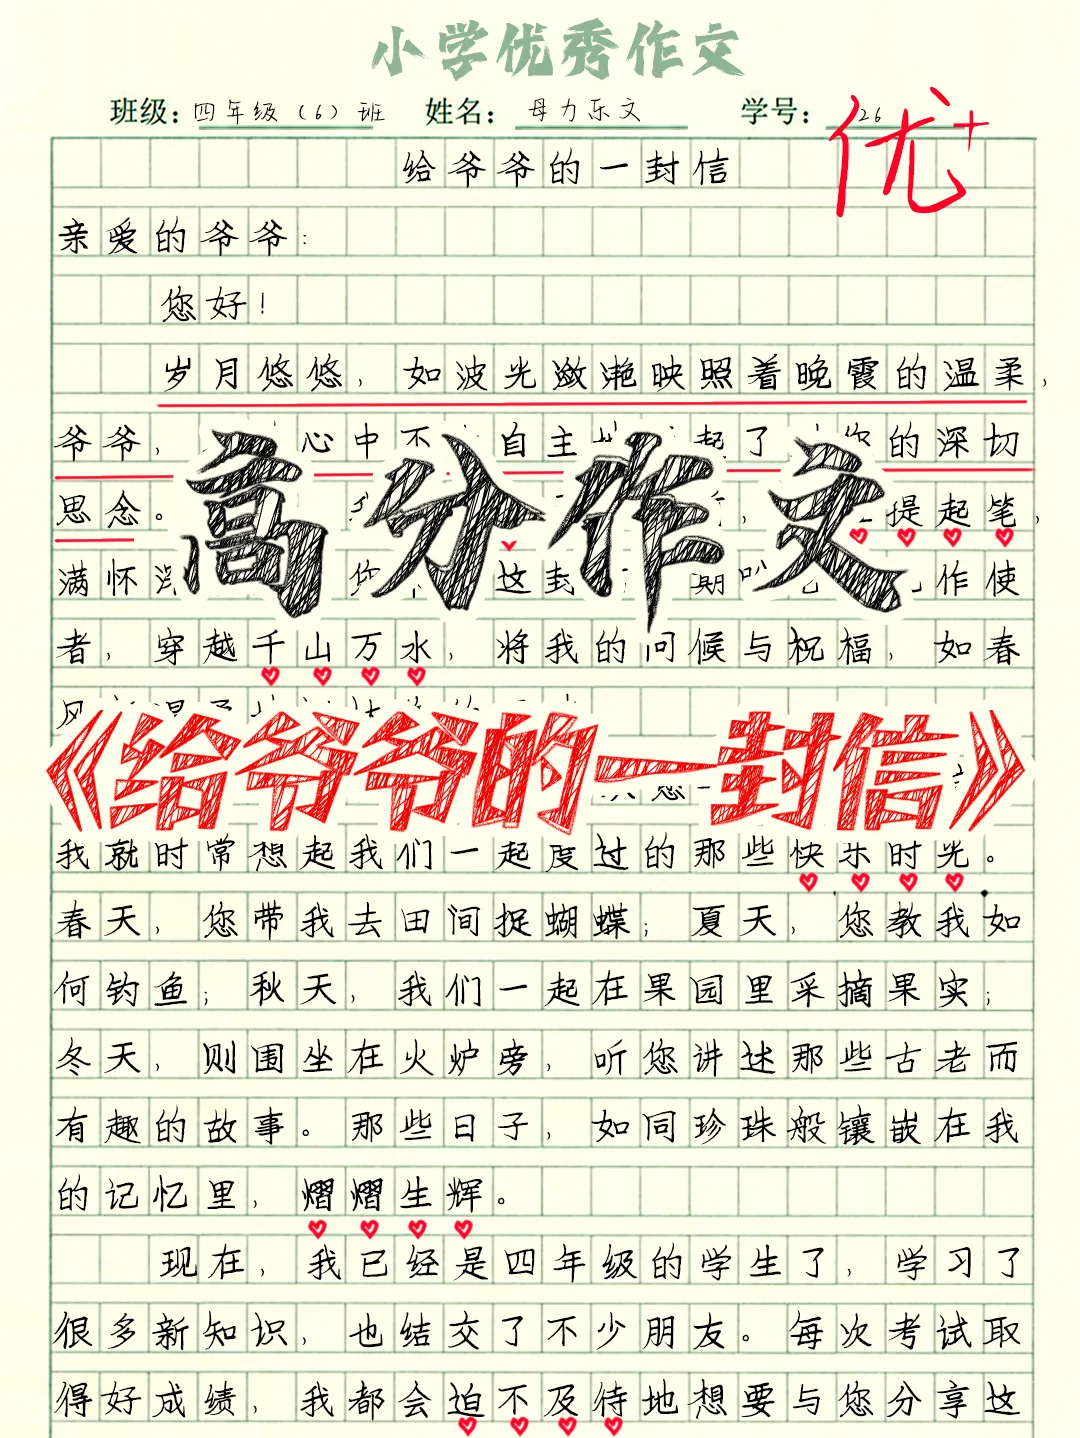 小学优秀作文
班级：四年级（6）班 姓名：母力乐文 学号：26
优+
给爷爷的一封信
亲爱的爷爷：
您好！
岁月悠悠，如波光潋滟映照着晚霞的温柔，
爷爷，心中不自主起了您的深切
思念。提起笔，
满怀您这封期作使
者，穿越千山万水，将我的问候与祝福，如春
高分作文
《给爷爷的一封信》
我就时常想起我们一起度过的那些快乐时光。
春天，您带我去田间捉蝴蝶；夏天，您教我如
何钓鱼；秋天，我们一起在果园里采摘果实；
冬天，则围坐在火炉旁，听您讲述那些古老而
有趣的故事。那些日子，如同珍珠般镶嵌在我
的记忆里，熠熠生辉。
现在，我已经是四年级的学生了，学习了
很多新知识，也结交了不少朋友。每次考试取
得好成绩，我都会迫不及待地想要与您分享这